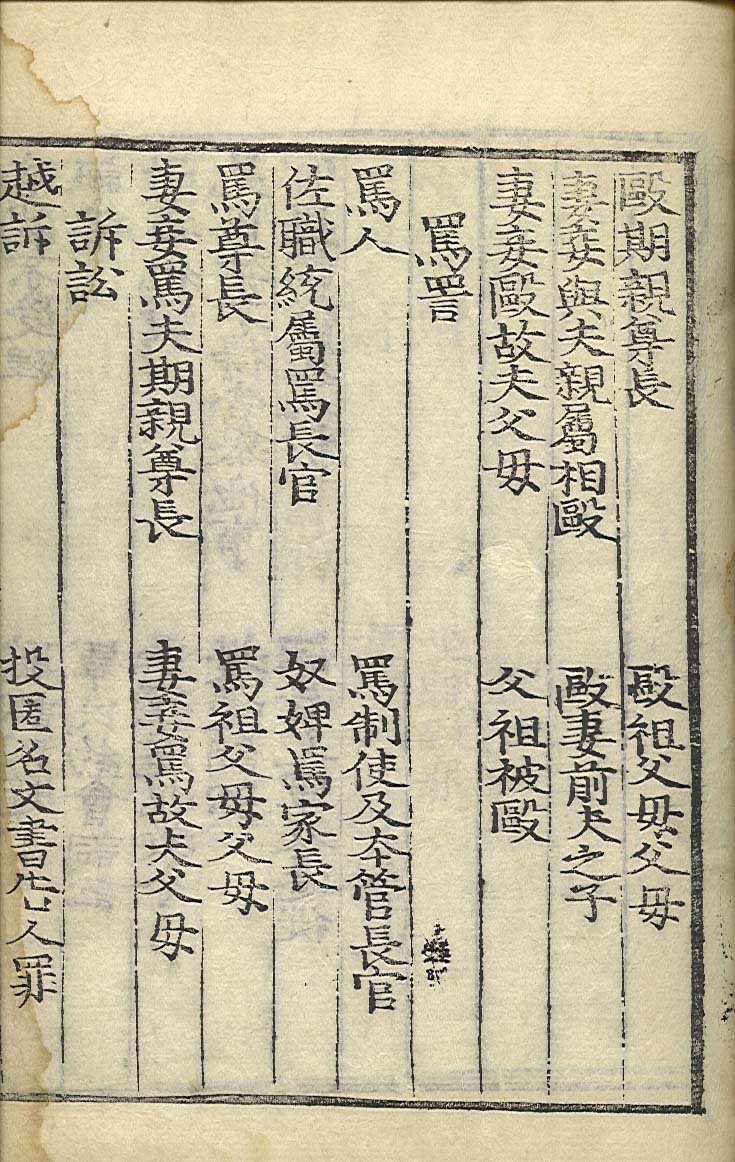 毆期親尊長 毆祖父母父母
妻妾與夫親屬相毆 毆妻前夫之子
妻妾毆故夫父母 父祖被毆
罵詈
罵人 罵制使及本管長官
佐職統屬罵長官 奴婢罵家長
罵尊長 罵祖父母父母
妻妾罵夫期親尊長 妻妾罵故夫父母
訴訟
越訴 投匿名文書告人罪